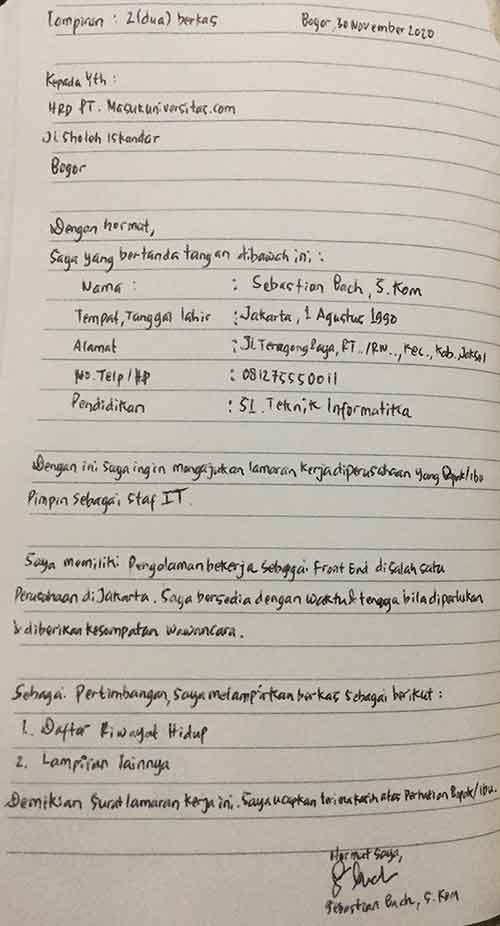 Lampiran : 2 (dua) berkas Bogor, 30 November 2020
Kepada Yth :
HRD PT. Masukuniversitas.com
Jl Sholeh Iskandar
Bogor
Dengan hormat,
Saya yang bertanda tangan dibawah ini :
Nama : : Sebastian Bach, S.Kom
Tempat, Tanggal lahir : Jakarta, 1 Agustus 1990
Alamat : Jl. Terogong Raya, RT../RW.., Kec., Kab. Jaksel
No. Telp / HP : 081275550011
Pendidikan : S1. Teknik Informatika
Dengan ini saya ingin mengajukan lamaran kerja diperusahaan yang Bapak/ibu
Pimpin sebagai staf IT.
Saya memiliki Pengalaman bekerja sebagai Front End disalah satu
Perusahaan di Jakarta. Saya bersedia dengan waktu & tenaga bila diperlukan
& diberikan kesempatan wawancara.
Sebagai Pertimbangan, saya melampirkan berkas sebagai berikut :
1. Daftar Riwayat Hidup
2. Lampiran lainnya
Demikian surat lamaran kerja ini. Saya ucapkan terima kasih atas Perhatian Bapak/ibu.
Hormat Saya,
Sebastian Bach, S.Kom